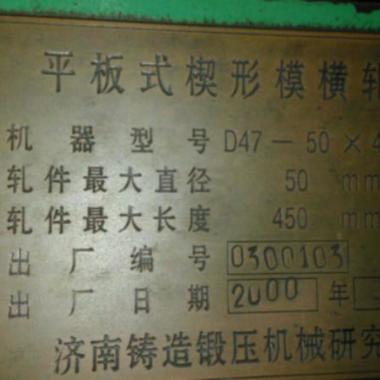 平板式楔形模横轧
机器型号 D47-50×4
轧件最大直径 50 mm
轧件最大长度 450 mm
出厂编号 0300103
出厂日期 2000 年
济南铸造锻压机械研究